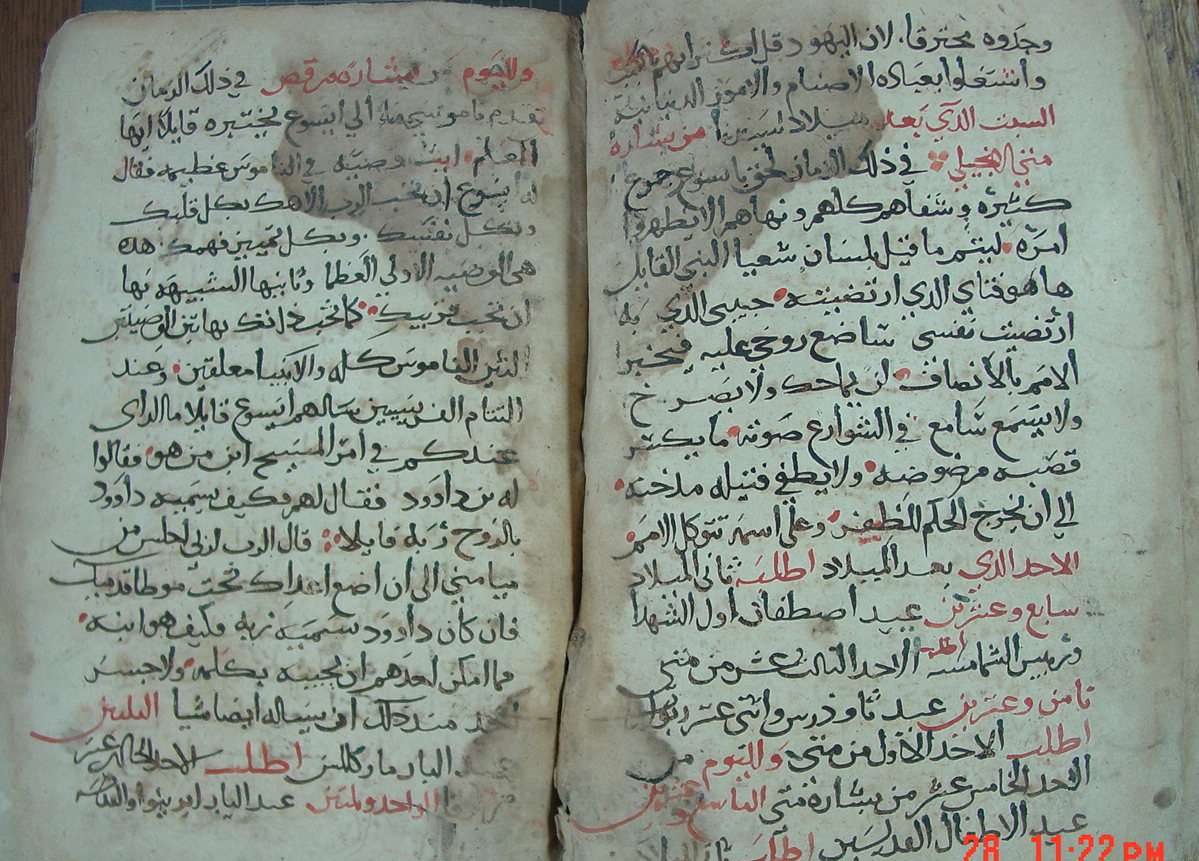 وجدوه محترقا، لان اليهود قبل
وانشغلوا بعباده الاصنام والامور الدنيانية
السبت الذي بعد ميلاد من بشارة
متى الانجيلي في ذلك الزمان لحق يا يسوع جموع
كثيره وشفاهم كلهم ونهاهم الا يظهروا
امره ليتم ما قيل بلسان شعيا النبي القايل
ها هو فتاي الذي ارتضيته حبيبي الذي به
ارتضيت نفسي ساضع روحي عليه فيخبر
الامم بالانصاف لن يماحك ولا يصرخ
ولا يسمع سامع في الشوارع صوته ما يكسر
قصبه مرضوضه ولا يطفي فتيله مدخنه
الي ان يخرج الحكم للظفر وعلى اسمه تتوكل الامم
الاحد الذي بعد الميلاد اطلبه ثاني الميلاد
سابع وعشرين عيد اصطفان اول الشهدا
وريس الشمامسه اطلب الاحد الثالث عشر من متى
ثامن وعشرين عيد تاوذرس واثني عشر ربوه
اطلب الاحد الاول من متى ولليوم من
الاحد الخامس عشر من بشارة متى التاسع وعشرين
عيد الاطفال القديسين اطلب
ولليوم بشاره مرقص في ذلك الزمان
تقدم ناموسي ما الى ايسوع ليختبره قايلا ايها
المعلم ايت وصيه في الناموس عظيمه فقال
له يسوع ان تحب الرب الاهك بكل قلبك
وبكل نفسك وبكل تمييز فهمك هذه
هي الوصيه الاولى العظما وثانيها الشبيهه بها
ان تحب قريبك كما تحب ذاتك بهاتين الوصيتين
الناموس كله والانبيا معلقين وعند
التيام الفريسيين سالهم ايسوع قايلا ما الذاي
عندكم في امر المسيح ابن من هو فقالوا
له بن داوود فقال لهم وكيف يسميه داوود
بالروح ربه قايلا قال الرب لربي اجلس من
ميامني الى ان اضع اعداك تحت موطا قدميك
فان كان داوود سميه ربه فكيف هو ابنه
فما امكن احدهم ان يجيبه بكلمه ولا جسر
احد منذ ذلك ان يساله ايضا شيا
عيد البار ماركلس اطلب الاحد الحادي عشر
الواحد وثلثين عبد البار
28 11:22 PM